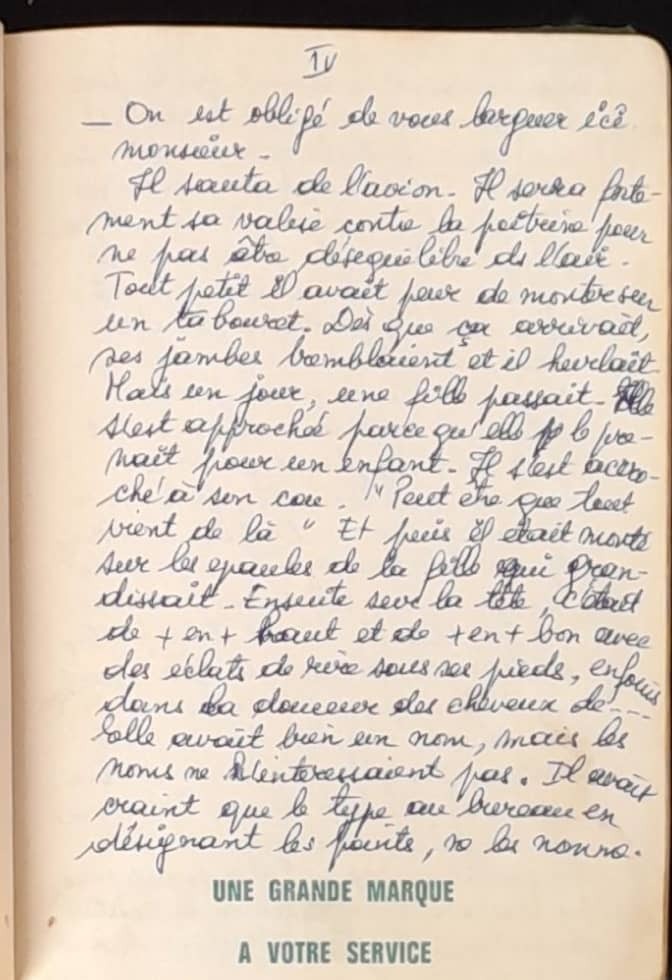 IV
_ On est obligé de vous larguer ici
monsieur.
Il sauta de l'avion. Il serra forte-
ment sa valise contre la poitrine pour
ne pas être déséquilibré ds l'air.
Tout petit il avait peur de monter sur
un tabouret. Dès que ça arrivait,
ses jambes tremblaient et il hurlait.
Mais un jour, une fille passait. Elle
s'est approchée parce qu'elle le pre-
nait pour un enfant. Il s'est accro-
ché à son cou. "Peut être que tout
vient de là" Et puis il était monté
sur les epaules de la fille qui gran-
dissait. Ensuite sur la tête, c'était
de + en + haut et de + en + bon avec
des éclats de rire sous ses pieds, enfouis
dans la douceur des cheveux de----
Elle avait bien un nom, mais les
noms ne l'interessaient pas. Il avait
craint que le type au bureau en
désignant les points, les nomma.
UNE GRANDE MARQUE
A VOTRE SERVICE